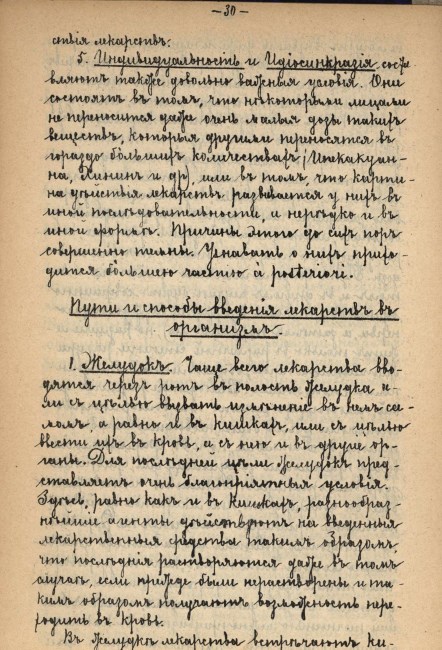 — 30 —
ствія лекарствъ.
5. Индивидуальность и Идіосинкразія соста
вляютъ также довольно важныя условія. Они
состоятъ въ томъ, что нѣкоторыми лицами
не переносятся даже очень малыя дозы такихъ
веществъ, которыя другими переносятся въ
гораздо бо́льшихъ количествахъ (Ипекакуан-
на, Хининъ и др), или въ томъ, что карти-
на дѣйствія лекарствъ развивается у нихъ въ
иной послѣдовательности, и нерѣдко и въ
иной формѣ. Причины этого до сихъ поръ
совершенно темны. Узнавать о нихъ прихо-
дится большею частію à posteriori.
Пути и способы введенія лекарствъ въ
организмъ.
1. Желудокъ. Чаще всего лекарства вво-
дятся черезъ ротъ въ полость желудка и-
ли съ цѣлью вызвать измѣненіе въ немъ са-
момъ, а равно и въ кишкахъ, или съ цѣлью
ввести ихъ въ кровь, а съ нею и въ другіе ор-
ганы. Для послѣдней цѣли желудокъ пред-
ставляетъ очень благопріятныя условія.
Здѣсь, равно какъ и въ кишкахъ, разнообраз-
нѣйшіе агенты дѣйствуютъ на введенныя
лекарственныя средства такимъ образомъ,
что послѣднія растворяются даже въ томъ
случаѣ, если прежде были нерастворены и та-
кимъ образомъ получаютъ возможность пере-
ходить въ кровь.
Въ желудкѣ лекарства встрѣчаютъ ки-